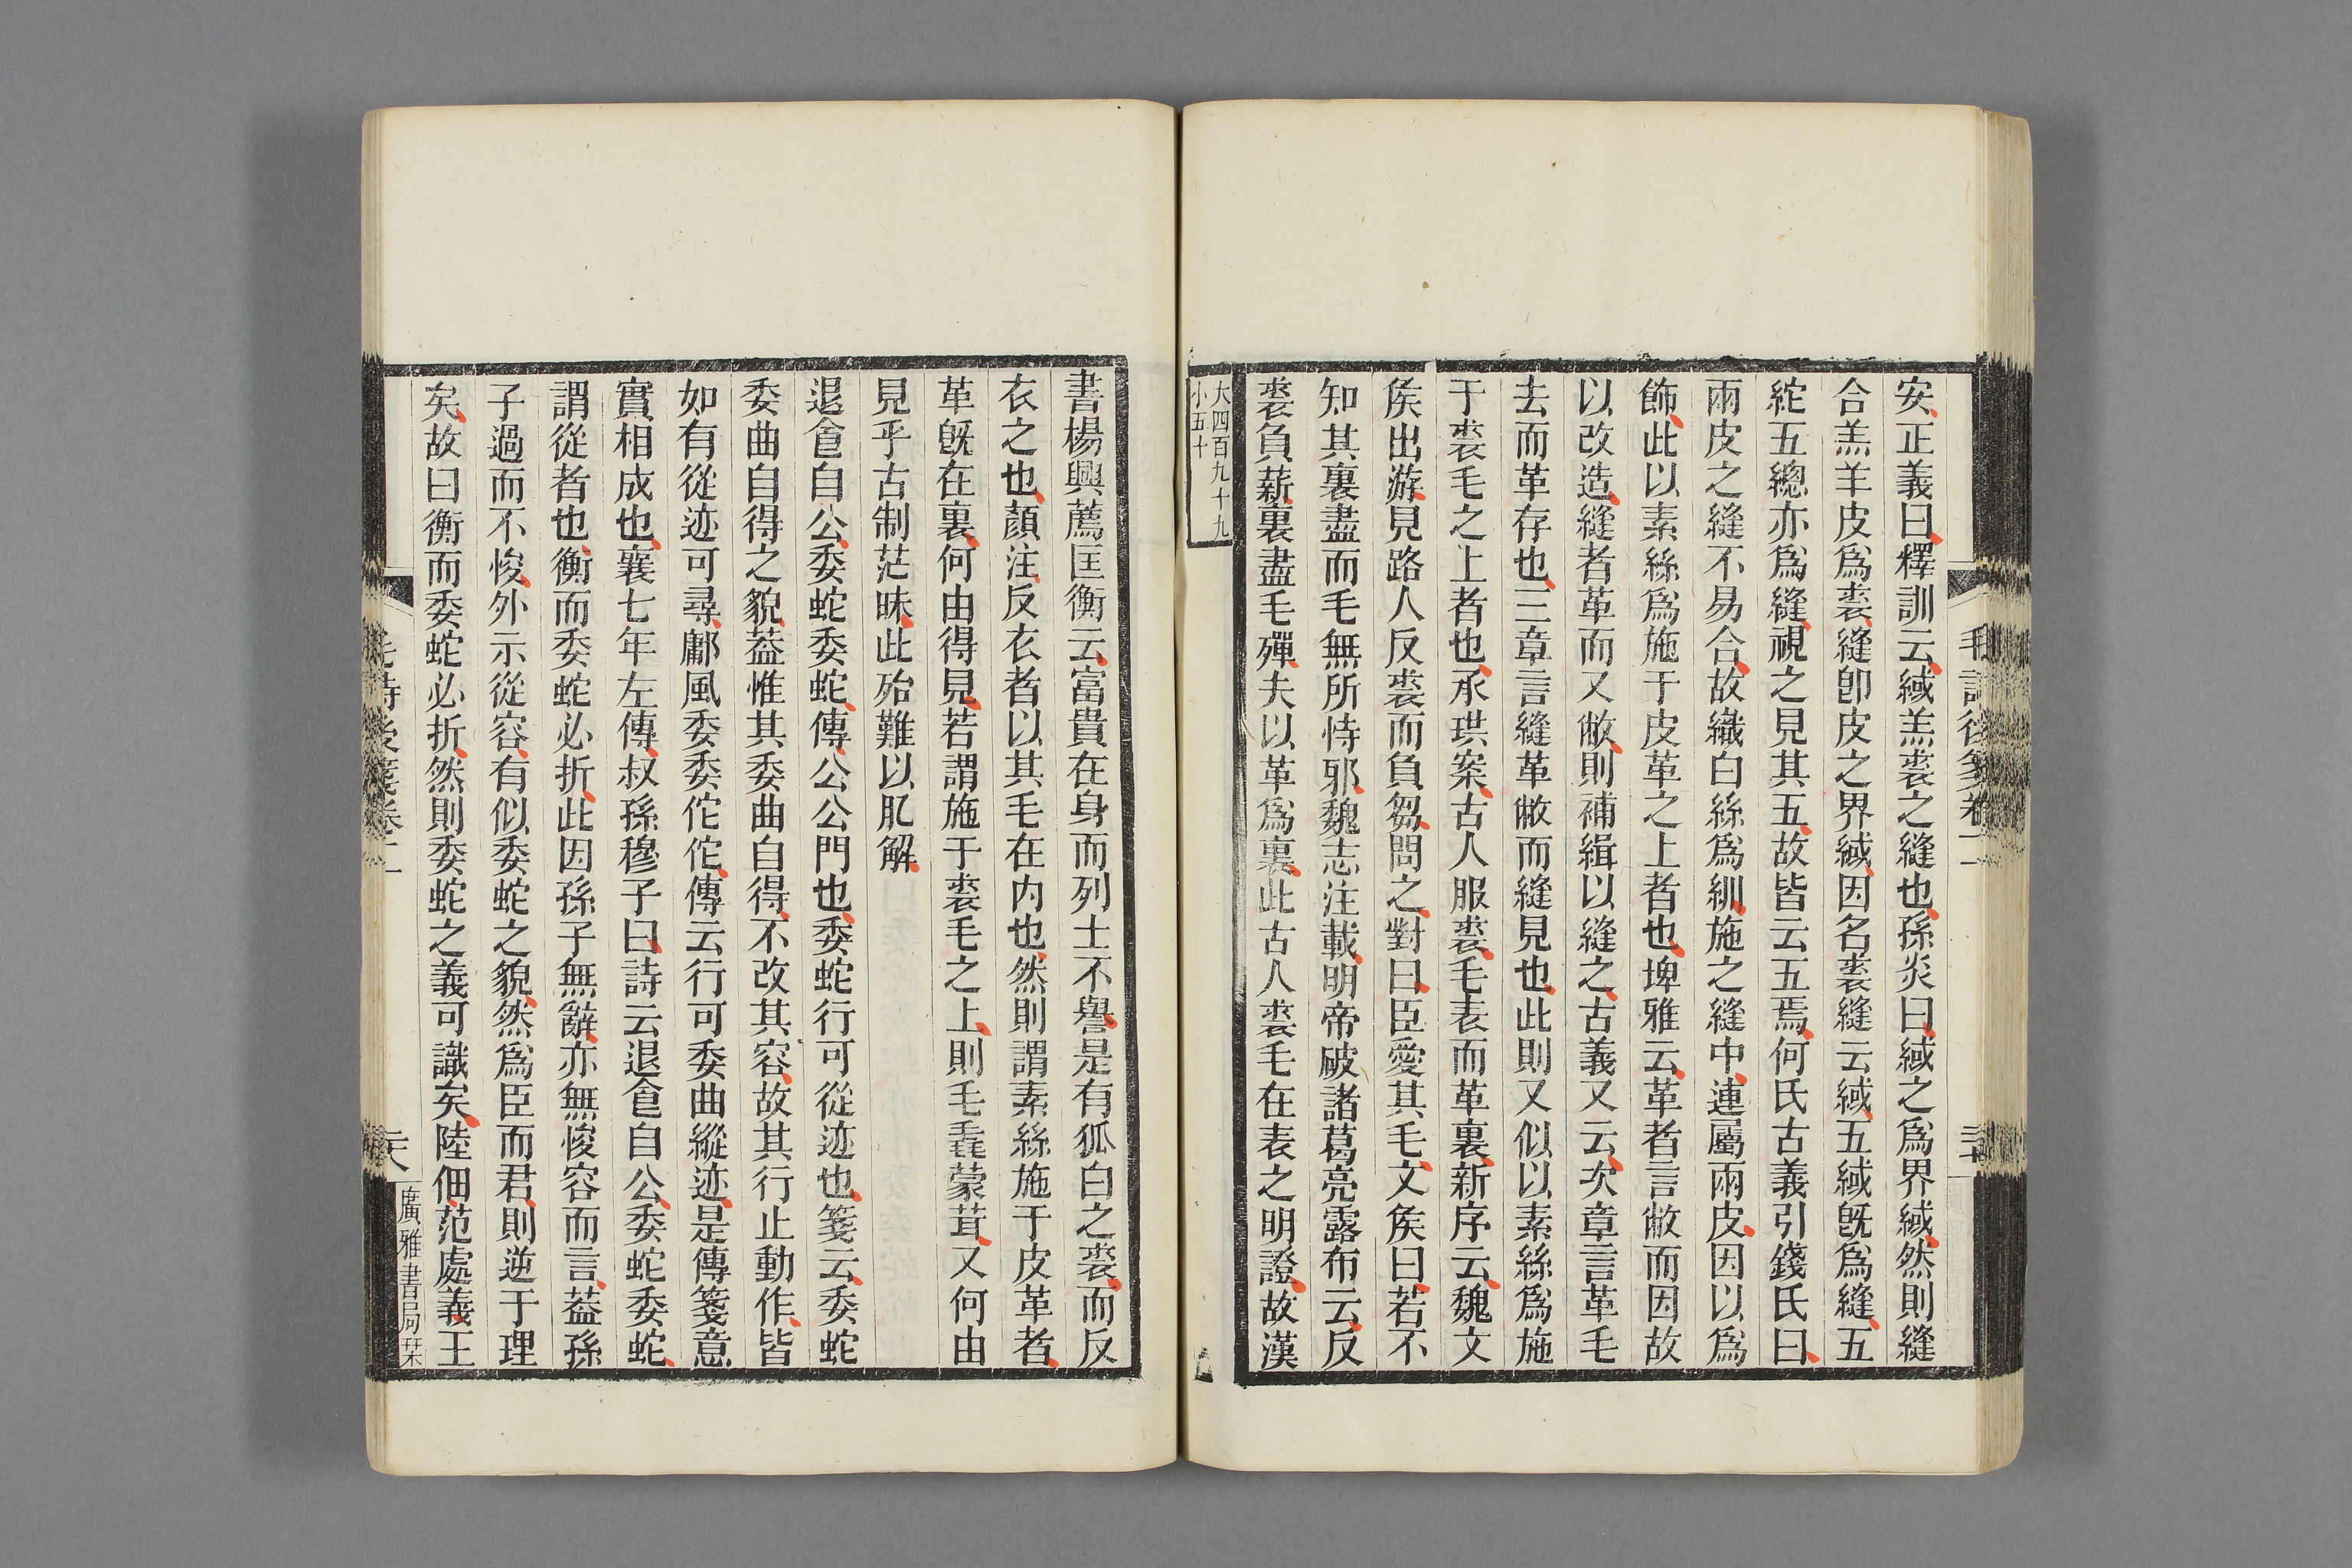 安正義曰釋訓云緎羔裘之縫也孫炎曰緎之爲界緎然則縫
合羔羊皮爲裘縫卽皮之界緎因名裘縫云緎五緎旣爲縫五
紽五總亦爲縫視之見其五故皆云五焉何氏古義引錢氏曰
兩皮之縫不易合故織白絲爲紃施之縫中連屬兩皮因以爲
飾此以素絲爲施于皮革之上者也埤雅云革者言敝而因故
以改造縫者革而又敝則補緝以縫之古義又云次章言革毛
去而革存也三章言縫革敝而縫見也此則又似以素絲爲施
于裘毛之上者也承珙案古人服裘毛表而革裏新序云魏文
矦出游見路人反裘而負芻問之對曰臣愛其毛文矦曰若不
知其裏盡而毛無所恃邪魏志注載明帝破諸葛亮露布云反
裘負薪裏盡毛殫夫以革爲裏此古人裘毛在表之明證故漢
大四百九十九
小五十
書楊興薦匡衡云富貴在身而列士不譽是有狐白之裘而反
衣之也顏注反衣者以其毛在内也然則謂素絲施于皮革者
革旣在裏何由得見若謂施于裘毛之上則毛毳蒙茸又何由
見乎古制茫昧此殆難以肊解
退食自公委蛇委蛇傳公公門也委蛇行可從迹也箋云委蛇
委曲自得之貌葢惟其委曲自得不改其容故其行止動作皆
如有從迹可尋鄘風委委佗佗傳云行可委曲縱迹是傳箋意
實相成也襄七年左傳叔孫穆子曰詩云退食自公委蛇委蛇
謂從者也衡而委蛇必折此因孫子無辭亦無悛容而言葢孫
子過而不悛外示從容有似委蛇之貌然爲臣而君則逆于理
矣故曰衡而委蛇必折然則委蛇之義可識矣陸佃范處義王
毛詩後箋卷二
廣雅書局栞